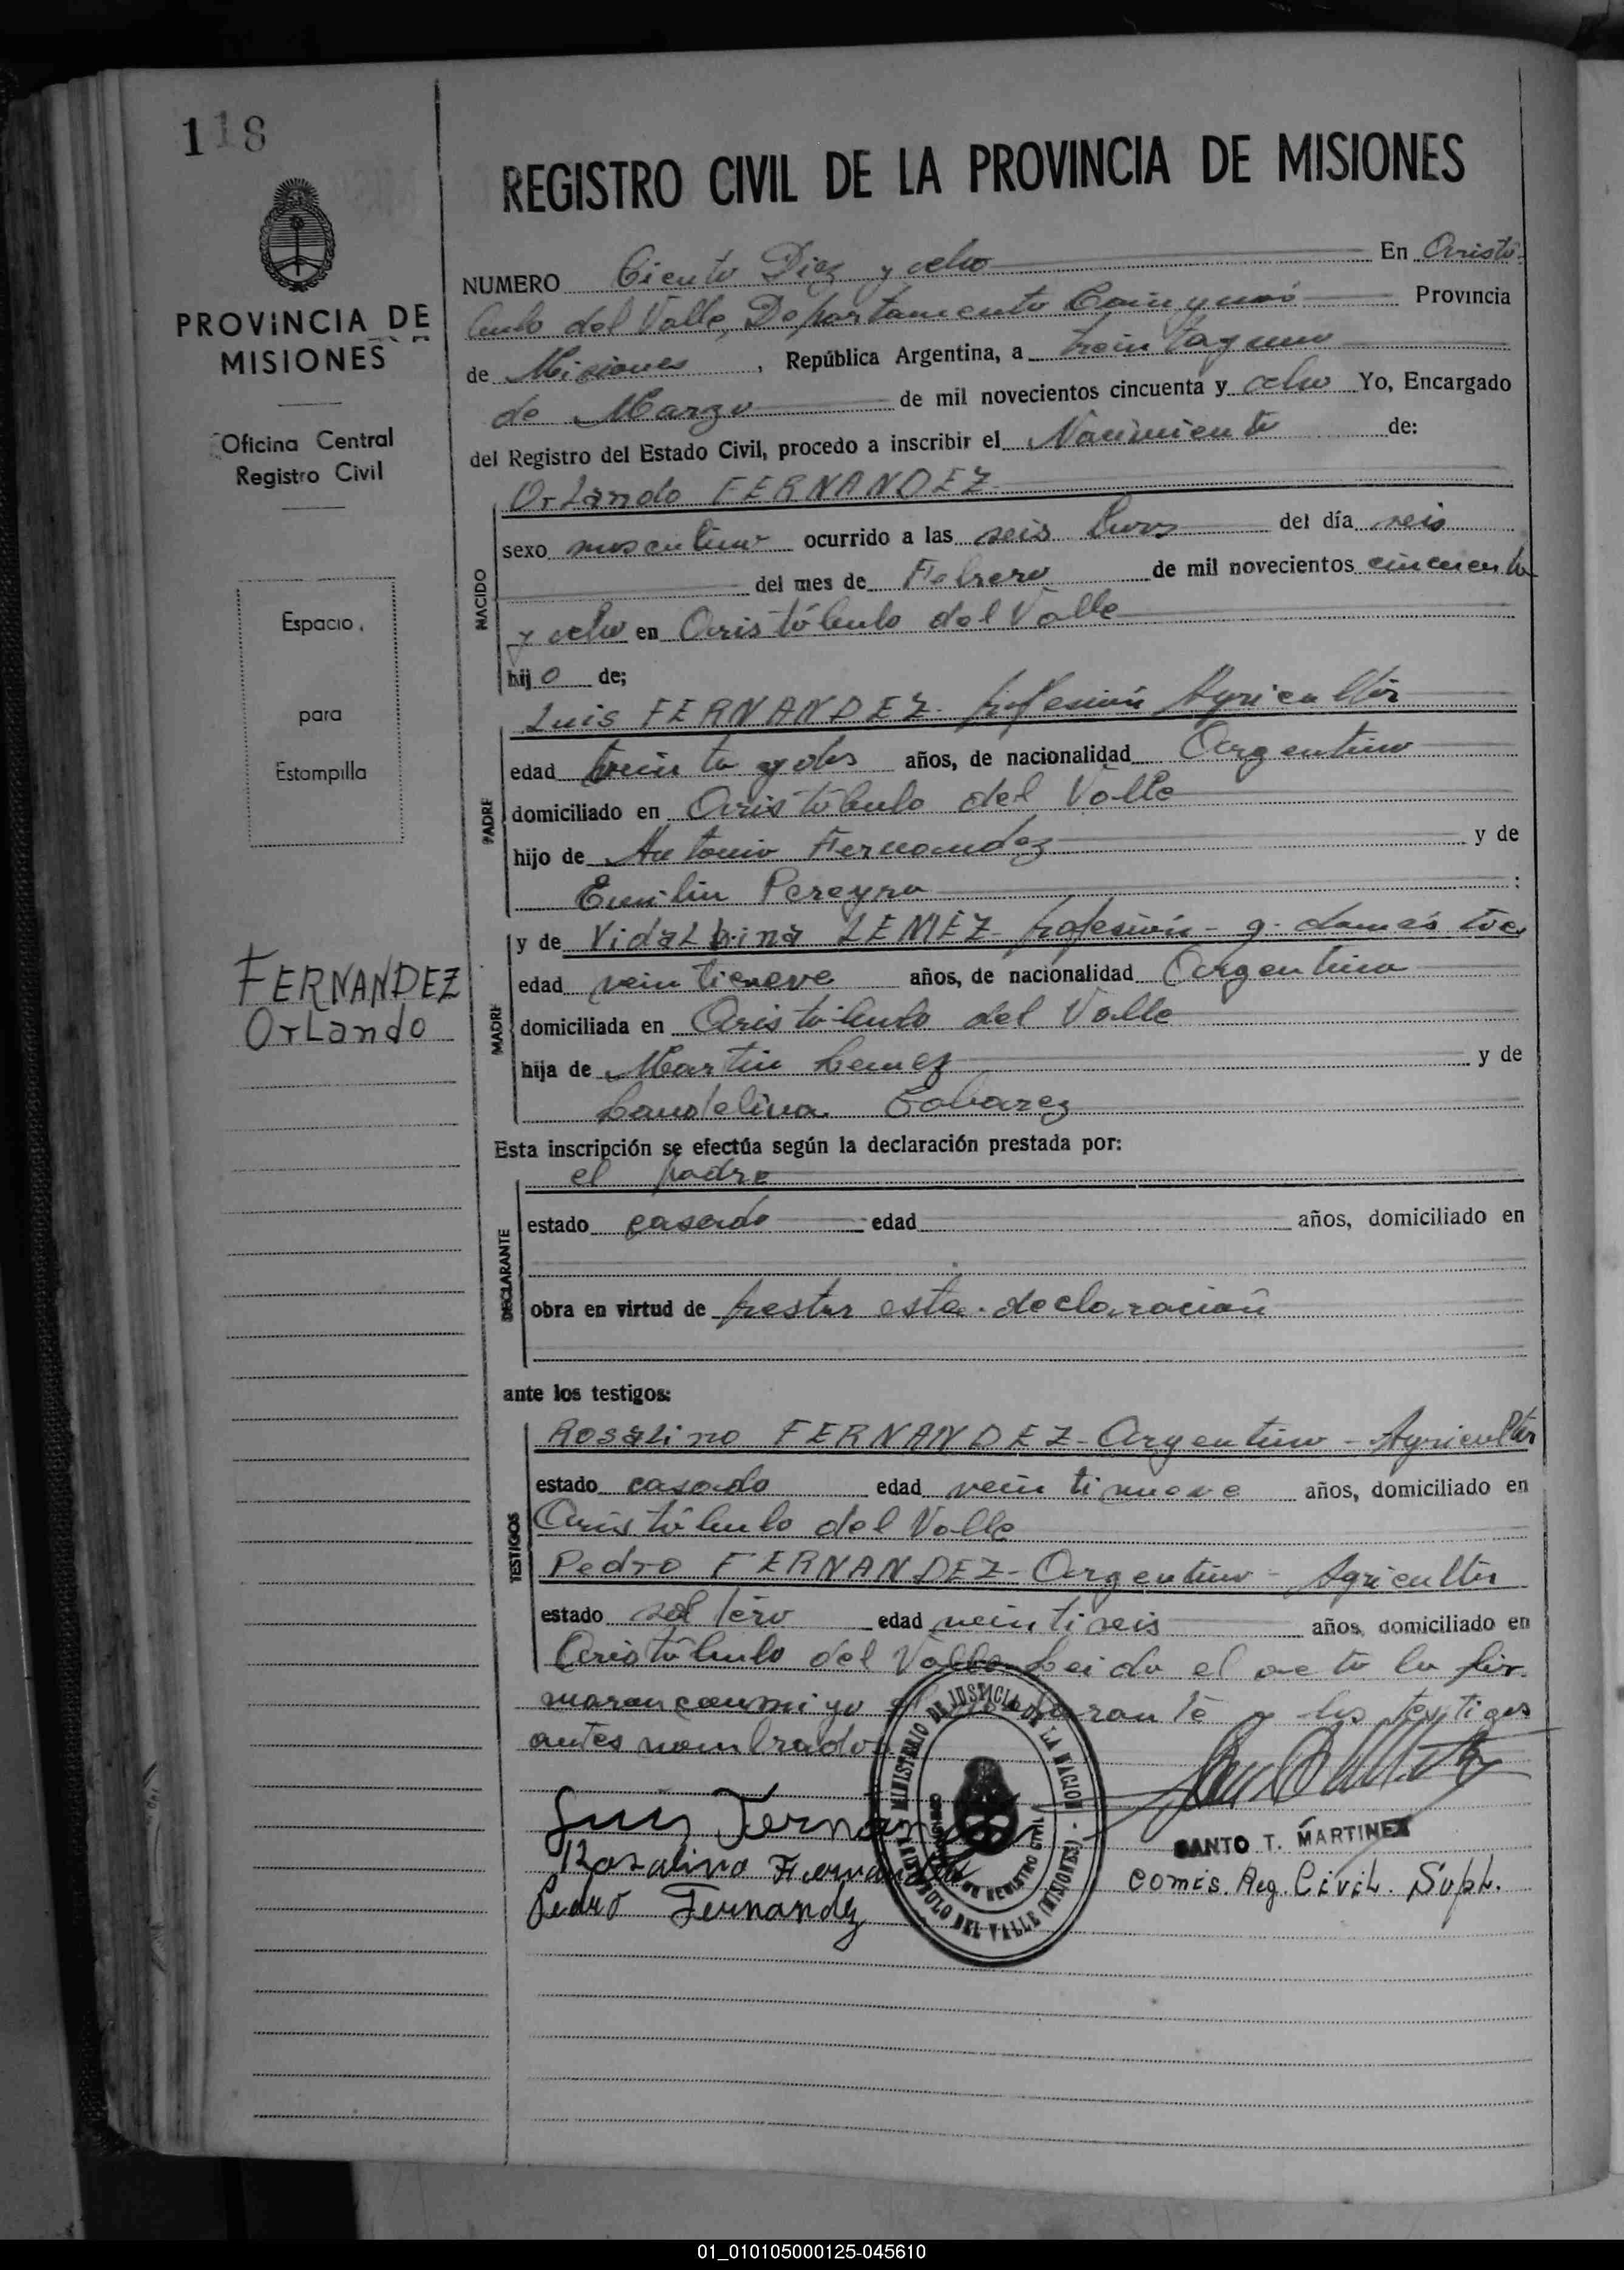 118
PROVINCIA DE
MISIONES
Oficina Central
Registro Civil
Espacio
para
Estampilla
FERNANDEZ
Orlando
REGISTRO CIVIL DE LA PROVINCIA DE MISIONES
NUMERO Ciento Diez y ocho En Aristó-
bulo del Valle, Departamento Cainguás Provincia
de Misiones, República Argentina, a treinta y uno
de Marzo de mil novecientos cincuenta y ocho Yo, Encargado
del Registro del Estado Civil, procedo a inscribir el Nacimiento de:
NACIDO
Orlando FERNANDEZ
sexo masculino ocurrido a las seis horas del día seis
del mes de Febrero de mil novecientos cincuenta
y ocho en Aristóbulo del Valle
hijo de;
PADRE
Luis FERNANDEZ. profesión Agricultor
edad treinta y dos años, de nacionalidad Argentino
domiciliado en Aristóbulo del Valle
hijo de Antonio Fernandez y de
Pereyra :
MADRE
y de Vidalbina LEMEZ profesión - q. domésticos
edad veintinueve años, de nacionalidad Argentina
domiciliada en Aristóbulo del Valle
hija de Martin Lemez y de
Candelina
Esta inscripción se efectúa según la declaración prestada por:
el padre
DECLARANTE
estado casado edad años, domiciliado en
obra en virtud de prestar esta declaración
ante los testigos:
TESTIGOS
Rosalino FERNANDEZ - Argentino - Agricultor
estado casado edad veintinueve años, domiciliado en
Aristóbulo del Valle
Pedro FERNANDEZ - Argentino - Agricultor
estado soltero edad veintiseis años, domiciliado en
Aristóbulo del Valle Leida el acta la fir-
maron conmigo el declarante y los testigos
antes nombrados
Luis Fernandez
Rosalino Fernandez
Pedro Fernandez
MINISTERIO DE JUSTICIA DE LA NACION
REGISTRO CIVIL
ARISTOBULO DEL VALLE (MISIONES)
SANTO T. MARTINEZ
Comis. Reg. Civil. Supl.
01_010105000125-045610